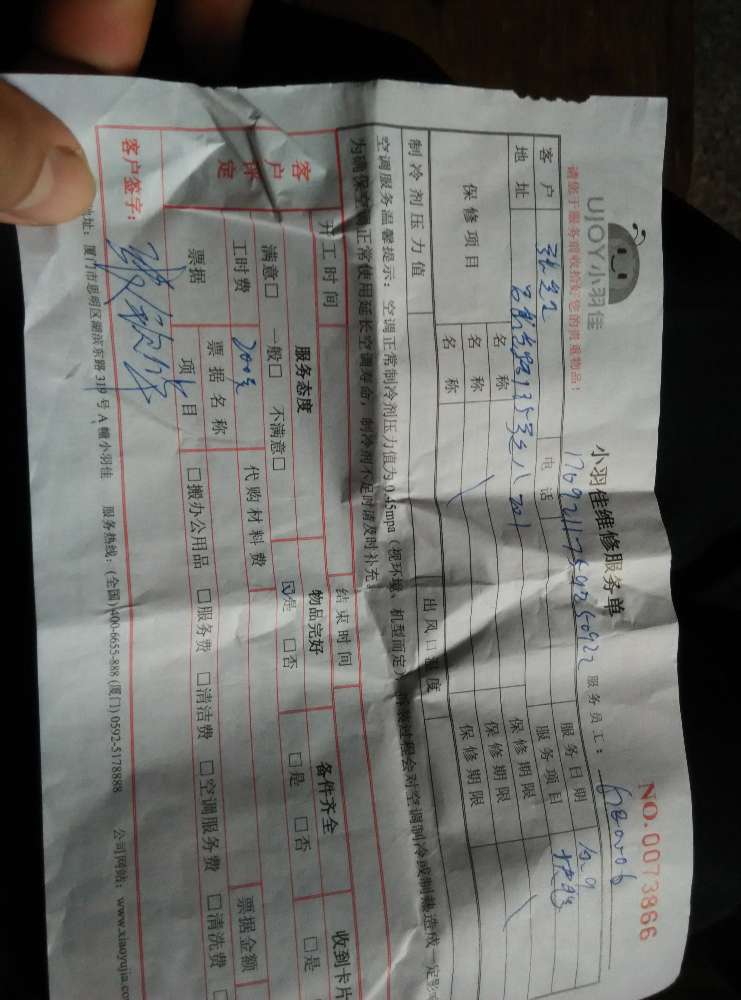 UJOY小羽佳
小羽佳维修服务单
NO.0073866
请您于服务前收拾好您的贵重物品!
服务员工:
客户
电话
服务日期
地址
服务项目
保修项目
名称
保修期限
名称
保修期限
名称
保修期限
制冷剂压力值
出风口温度
空调服务温馨提示:空调正常制冷剂压力值为0.45mpa(视环境、机型而定)
过程会对空调制冷或制热造成一定影
为确保空调正常使用延长空调寿命,制冷剂不足时请及时补充
开工时间
结束时间
客户评定
服务态度
物品完好
备件齐全
收到卡片
满意□ 一般□ 不满意□
☑是 □否
□是 □否
□是
工时费
200元
代购材料费
票据
票据名称
票据金额
项目
□搬办公用品 □服务费 □清洁费 □空调服务费 □清洗费
客户签字:
地址:厦门市思明区湖滨东路319号A幢小羽佳 服务热线:(全国)400-6655-888 (厦门) 0592-5178888 公司网站:www.xiaoyujia.co